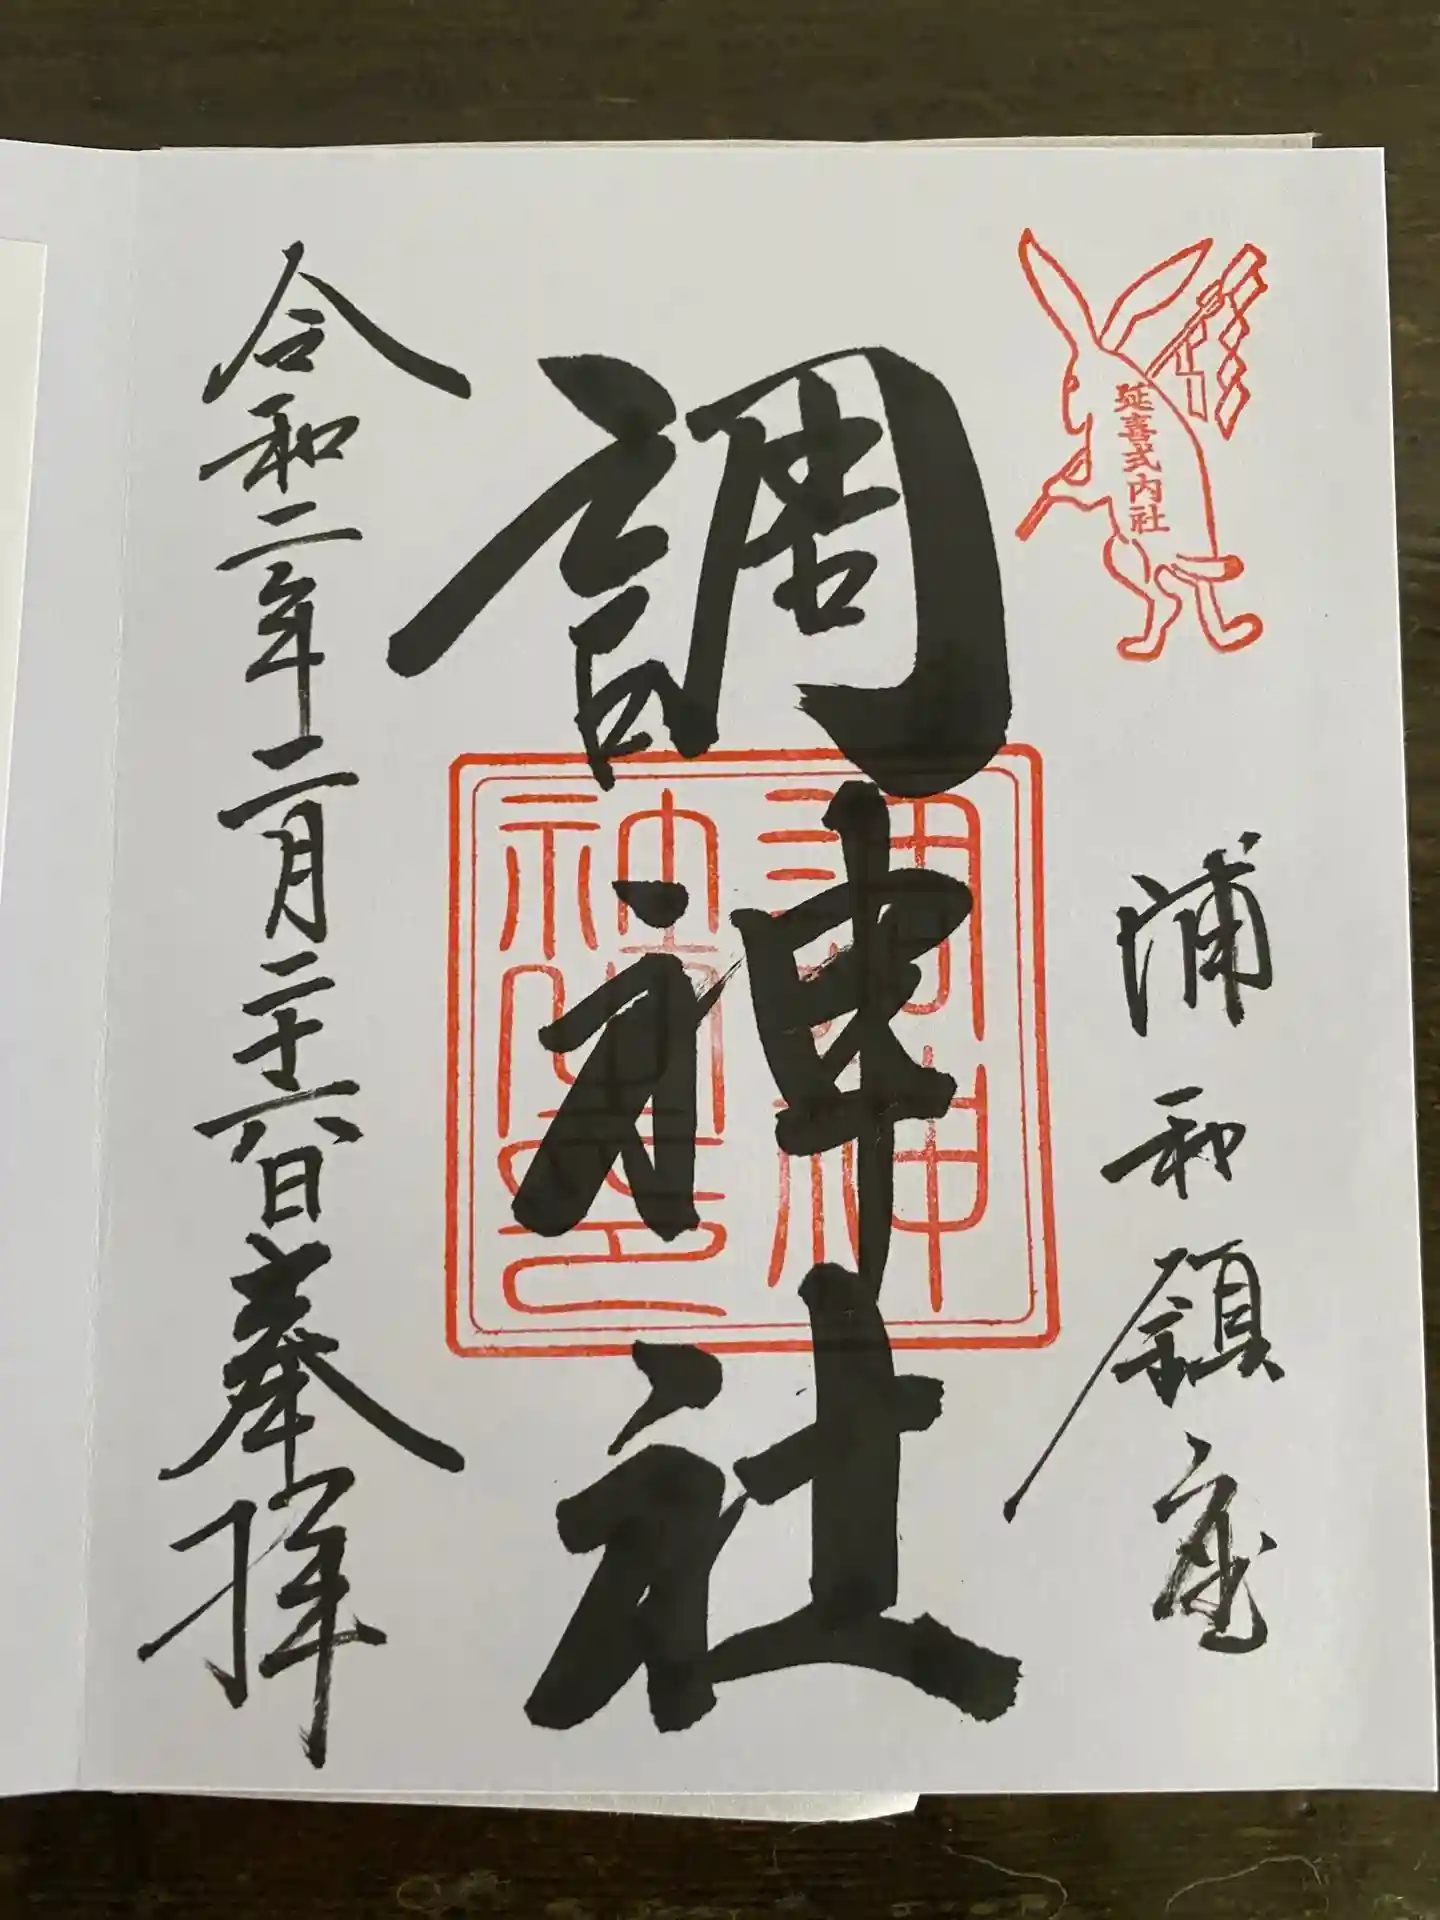 延喜式内社
浦和鎮座
調神社
調神
社
令和二年二月二十六日奉拝